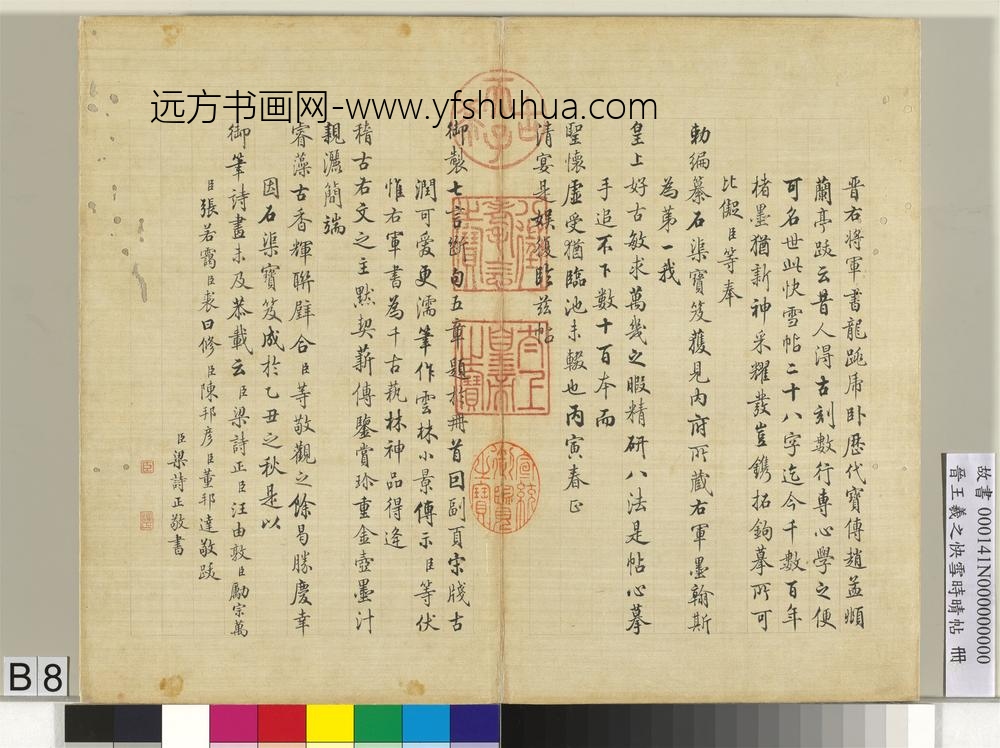 远方书画网-www.yfshuhua.com
晉右將軍書龍跳虎卧歷代寶傳趙孟頫
蘭亭跋云昔人得古刻數行專心學之便
可名世此快雪帖二十八字迄今千數百年
楮墨猶新神采耀發豈鐫拓鉤摹所可
比儗臣等奉
勅編纂石渠寶笈獲見內府所藏右軍墨翰斯
為第一我
皇上好古敏求萬幾之暇精研八法是帖心摹
手追不下數十百本而
聖懷虛受猶臨池未輟也丙寅春正
清宴是娛復臨茲帖
御製七言斷句五章題於冊首回副頁宋牋古
潤可愛更濡筆作雲林小景傳示臣等伏
惟右軍書為千古藝林神品得逢
稽古右文之主默契薪傳鑒賞珍重金壺墨汁
親灑簡端
睿藻古香輝聯璧合臣等敬觀之餘曷勝慶幸
因石渠寶笈成於乙丑之秋是以
御筆詩畫未及恭載云臣梁詩正臣汪由敦臣勵宗萬
臣張若靄臣裘曰修臣陳邦彥臣董邦達敬跋
臣梁詩正敬書
太上
皇帝
之寶
故書 000141N000000000
晉王羲之快雪時晴帖 冊
B 8